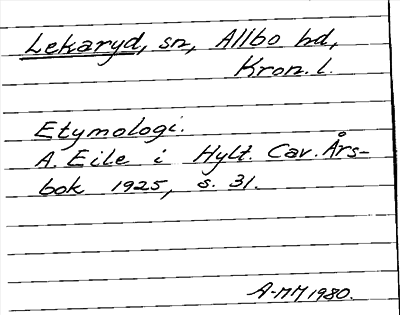 Lekaryd, sn, Allbo hd,
Kron. l.
Etymologi.
A. Eile i Hylt. Cav. Års-
bok 1925, s. 31.
A-MM 1980.